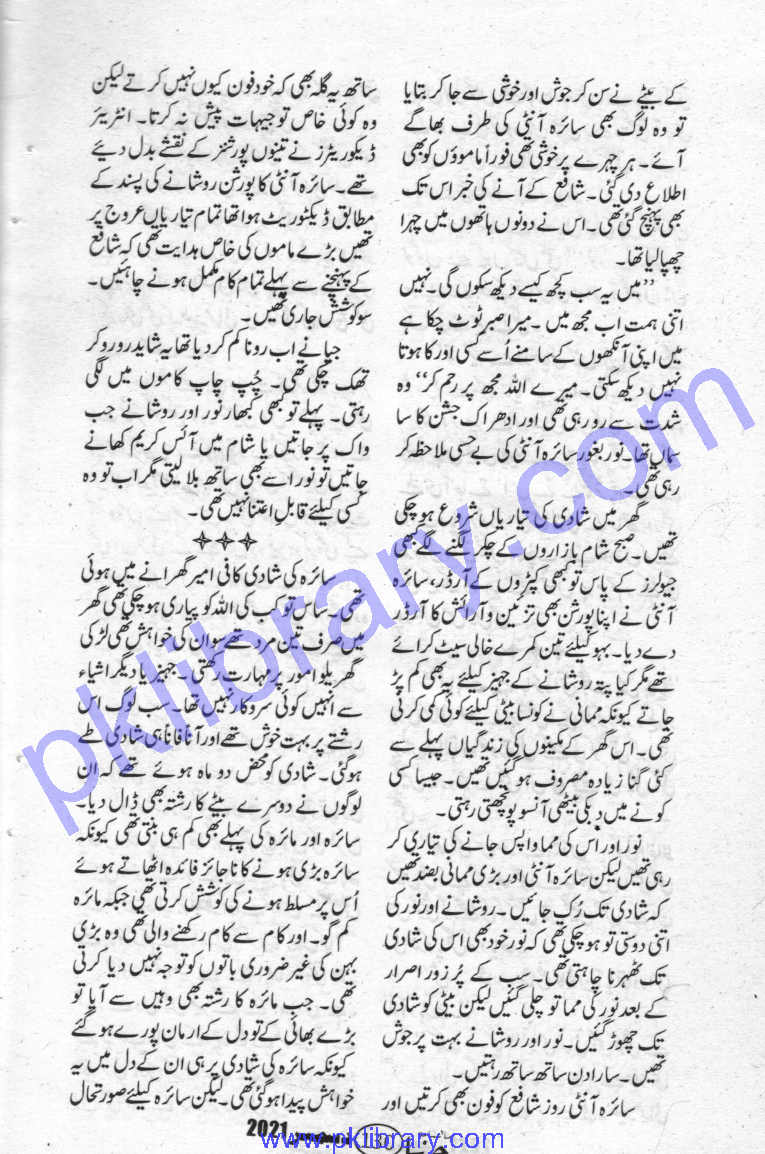 کے بیٹے نے سن کر جوش اور خوشی سے جا کر بتایا
تو وہ لوگ بھی سائرہ آنٹی کی طرف بھاگے
آئے۔ ہر چہرے پر خوشی تھی فوراً ماموؤں کو بھی
اطلاع دی گئی۔ شافع کے آنے کی خبر اس تک
بھی پہنچ گئی تھی۔ اس نے دونوں ہاتھوں میں چہرا
چھپا لیا تھا۔
’’میں یہ سب کچھ کیسے دیکھ سکوں گی۔ نہیں
اتنی ہمت اب مجھ میں۔ میرا صبر ٹوٹ چکا ہے
میں اپنی آنکھوں کے سامنے اُسے کسی اور کا ہوتا
نہیں دیکھ سکتی۔ میرے اللہ مجھ پر رحم کر‘‘ وہ
شدت سے رو رہی تھی اور ادھر اک جشن کا سا
سماں تھا۔ نور بغور سائرہ آنٹی کی بے حسی ملاحظہ کر
رہی تھی۔
گھر میں شادی کی تیاریاں شروع ہو چکی
تھیں۔ صبح شام بازاروں کے چکر لگنے لگے کبھی
جیولرز کے پاس تو کبھی کپڑوں کے آرڈر، سائرہ
آنٹی نے اپنا پورشن بھی تزئین و آرائش کا آرڈر
دے دیا۔ بہو کیلئے تین کمرے خالی سیٹ کرائے
تھے مگر کیا پتہ روشانے کے جہیز کیلئے یہ بھی کم پڑ
جاتے کیونکہ ممانی نے کونسا بیٹی کیلئے کوئی کمی کرنی
تھی۔ اس گھر کے مکینوں کی زندگیاں پہلے سے
کئی گنا زیادہ مصروف ہو گئیں تھیں۔ جیسا کسی
کونے میں دبکی بیٹھی آنسو پونچھتی رہتی۔
نور اور اس کی مما واپس جانے کی تیاری کر
رہی تھیں لیکن سائرہ آنٹی اور بڑی ممانی بضد تھیں
کہ شادی تک رُک جائیں۔ روشانے اور نور کی
اتنی دوستی تو ہو چکی تھی کہ نور خود بھی اس کی شادی
تک ٹھہرنا چاہتی تھی۔ سب کے پُر زور اصرار
کے بعد نور کی مما تو چلی گئیں لیکن بیٹی کو شادی
تک چھوڑ گئیں۔ نور اور روشانے بہت پر جوش
تھیں۔ سارا دن ساتھ ساتھ رہتیں۔
سائرہ آنٹی روز شافع کو فون بھی کرتیں اور
ساتھ یہ گلہ بھی کہ خود فون کیوں نہیں کرتے لیکن
وہ کوئی خاص توجیہات پیش نہ کرتا۔ انٹریئر
ڈیکوریٹرز نے تینوں پورشنز کے نقشے بدل دیئے
تھے۔ سائرہ آنٹی کا پورشن روشانے کی پسند کے
مطابق ڈیکوریٹ ہوا تھا تمام تیاریاں عروج پر
تھیں بڑے ماموں کی خاص ہدایت تھی کہ شافع
کے پہنچنے سے پہلے تمام کام مکمل ہونے چاہئیں۔
سو کوشش جاری تھیں۔
جیا نے اب رونا کم کر دیا تھا یہ شاید رو رو کر
تھک چکی تھی۔ چُپ چاپ کاموں میں لگی
رہتی۔ پہلے تو کبھی کبھار نور اور روشانے جب
واک پر جاتیں یا شام میں آئس کریم کھانے
جاتیں تو نور اسے بھی ساتھ بلا لیتی مگر اب تو وہ
کسی کیلئے قابلِ اعتنا نہیں تھی۔
✦✦✦
سائرہ کی شادی کافی امیر گھرانے میں ہوئی
تھی۔ ساس تو کب کی اللہ کو پیاری ہو چکی تھی گھر
میں صرف تین مرد تھے سو ان کی خواہش تھی لڑکی
گھریلو امور پر مہارت رکھتی۔ جہیز یا دیگر اشیاء
سے انہیں کوئی سروکار نہیں تھا۔ سب لوگ اس
رشتے پر بہت خوش تھے اور آناً فاناً ہی شادی طے
ہو گئی۔ شادی کو محض دو ماہ ہوئے تھے کہ ان
لوگوں نے دوسرے بیٹے کا رشتہ بھی ڈال دیا۔
سائرہ اور مائرہ کی پہلے بھی کم ہی بنتی تھی کیونکہ
سائرہ بڑی ہونے کا ناجائز فائدہ اٹھاتے ہوئے
اُس پر مسلط ہونے کی کوشش کرتی تھی جبکہ مائرہ
کم گو۔ اور کام سے کام رکھنے والی تھی وہ بڑی
بہن کی غیر ضروری باتوں کو توجہ نہیں دیا کرتی
تھی۔ جب مائرہ کا رشتہ بھی وہیں سے آیا تو
بڑے بھائی کے تو دل کے ارمان پورے ہو گئے
کیونکہ سائرہ کی شادی پر ہی ان کے دل میں یہ
خواہش پیدا ہو گئی تھی۔ لیکن سائرہ کیلئے صورتحال
2021
www.pklibrary.com
pklibrary.com